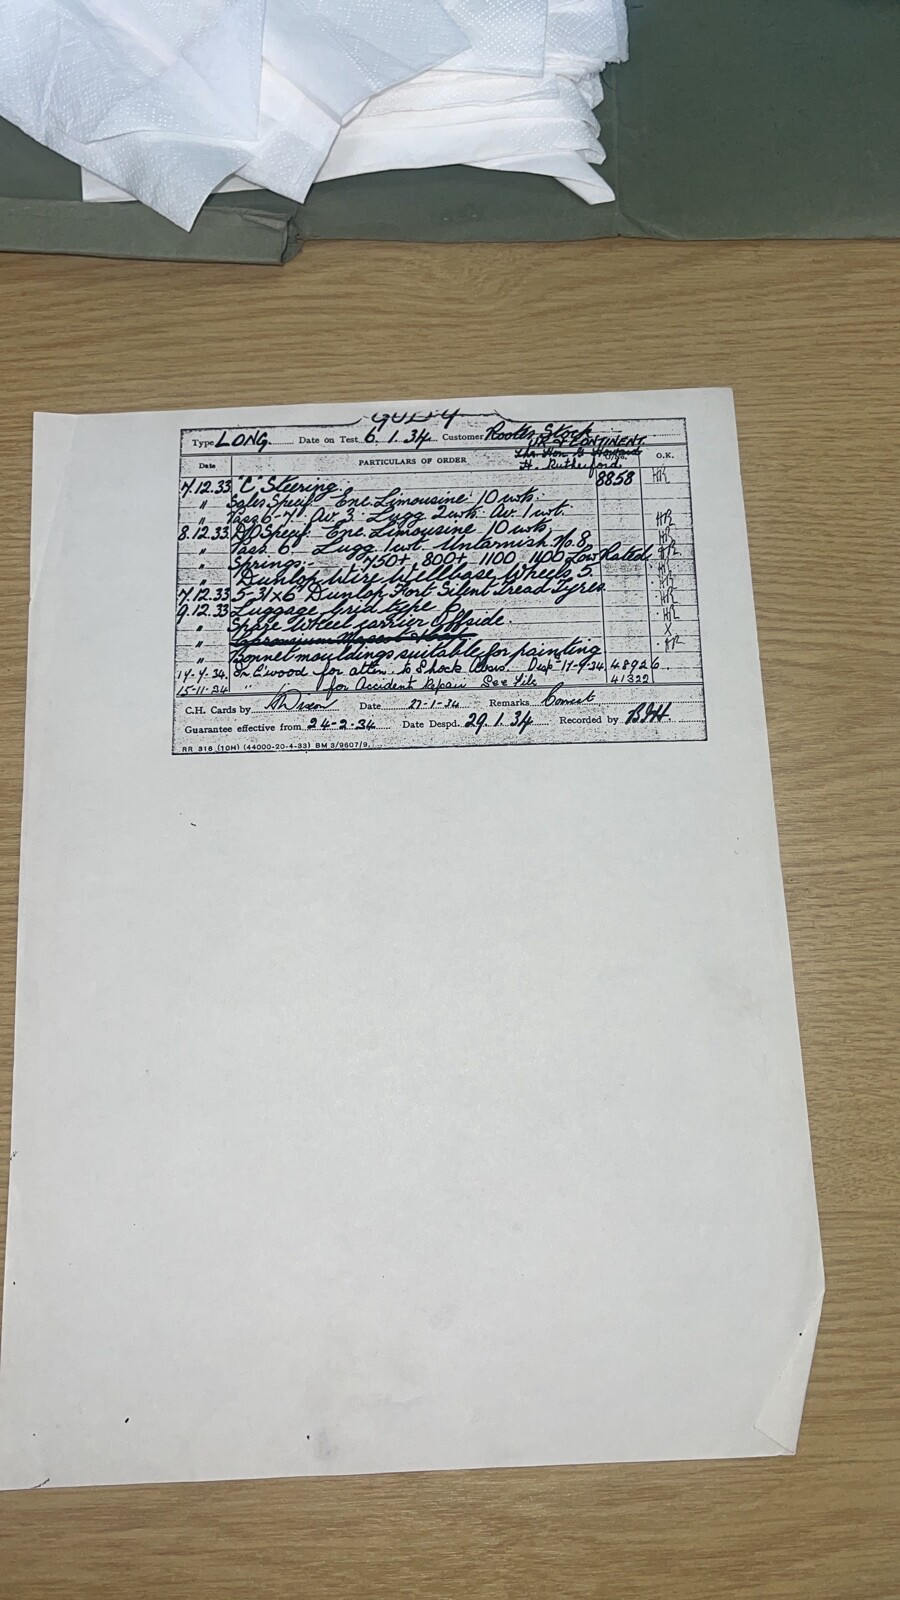 Type LONG. Date on Test 6.1.34. Customer Rootes Stock
UK & CONTINENT
Date PARTICULARS OF ORDER The Hon. G. Howard O.K.
H. Rutherford
7.12.33 "C" Steering. 8858 HR
" Sales Specif. Enc. Limousine. 10 cwts.
" Pass 6-7. Av. 3. Lugg 2 cwts. Av. 1 cwt. HR
8.12.33 Specif. Enc. Limousine 10 cwts HR
" Pass. 6 Lugg 1 cwt. Untarnish No. 8 HR
" Springs:- 750+ 800+ 1100 1400 Low Rated. HR
" Dunlop Wire Wellbase Wheels 5. HR
7.12.33 5-31x6 Dunlop Fort Silent Tread Tyres. HR
9.12.33 Luggage Grid type HR
" Spare Wheel carrier Offside. HR
" Mascot X
" Bonnet mouldings suitable for painting HR
17-9-34 In C'wood for attn. to Shock Abs. 48926
15-11-34 " for Accident Repair See File 41322
C.H. Cards by Dixon Date 27-1-34 Remarks
Guarantee effective from 24-2-34 Date Despd. 29.1.34. Recorded by
RR 316 (10H) (44000-20-4-33) BM 3/9607/9.